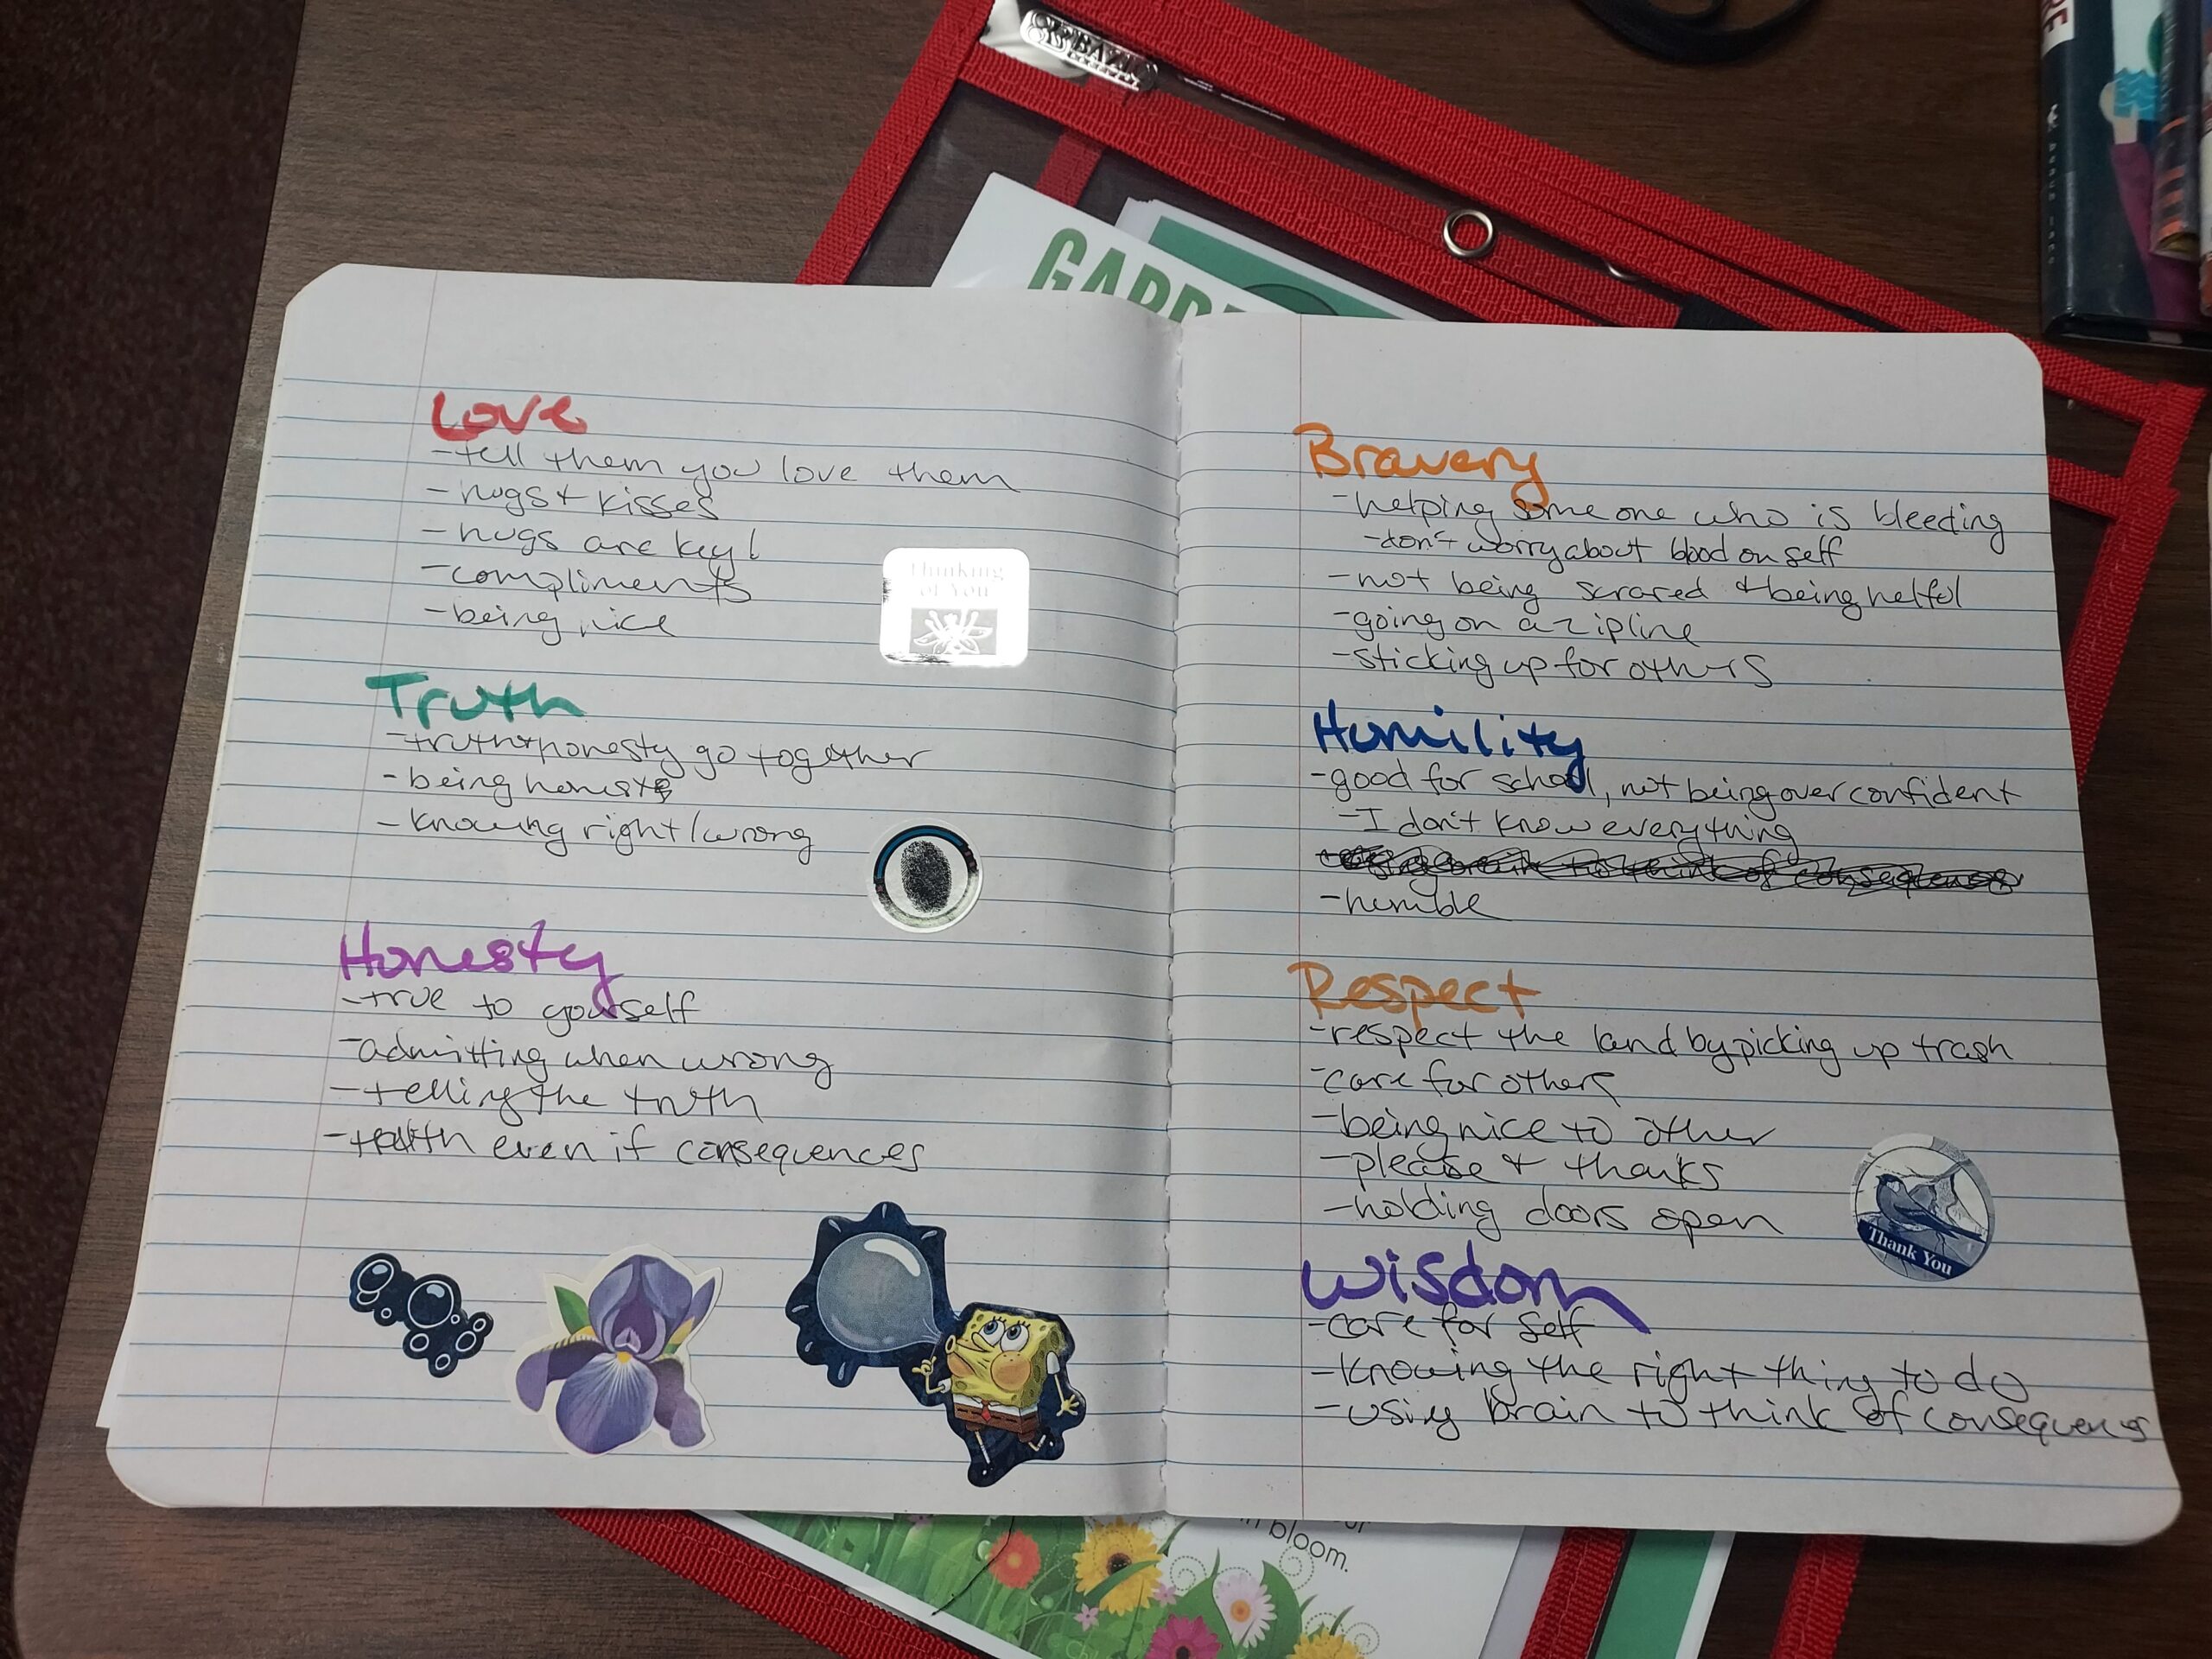 BAZIC
GARDE
Love
-tell them you love them
-hugs + kisses
-hugs are key!
-compliments
-being nice
Thinking
of You
Truth
-truth + honesty go together
-being honest
-knowing right/wrong
Honesty
-true to yourself
-admitting when wrong
-telling the truth
-truth even if consequences
Bravery
-helping someone who is bleeding
-don't worry about blood on self
-not being scrared + being helful
-going on a zipline
-sticking up for others
Humility
-good for school, not being over confident
-I don't know everything
-using brain to think of consequences
-humble
Respect
-respect the land by picking up trash
-care for others
-being nice to other
-please + thanks
-holding doors open
Thank You
Wisdom
-care for self
-knowing the right thing to do
-using brain to think of consequences
in bloom.